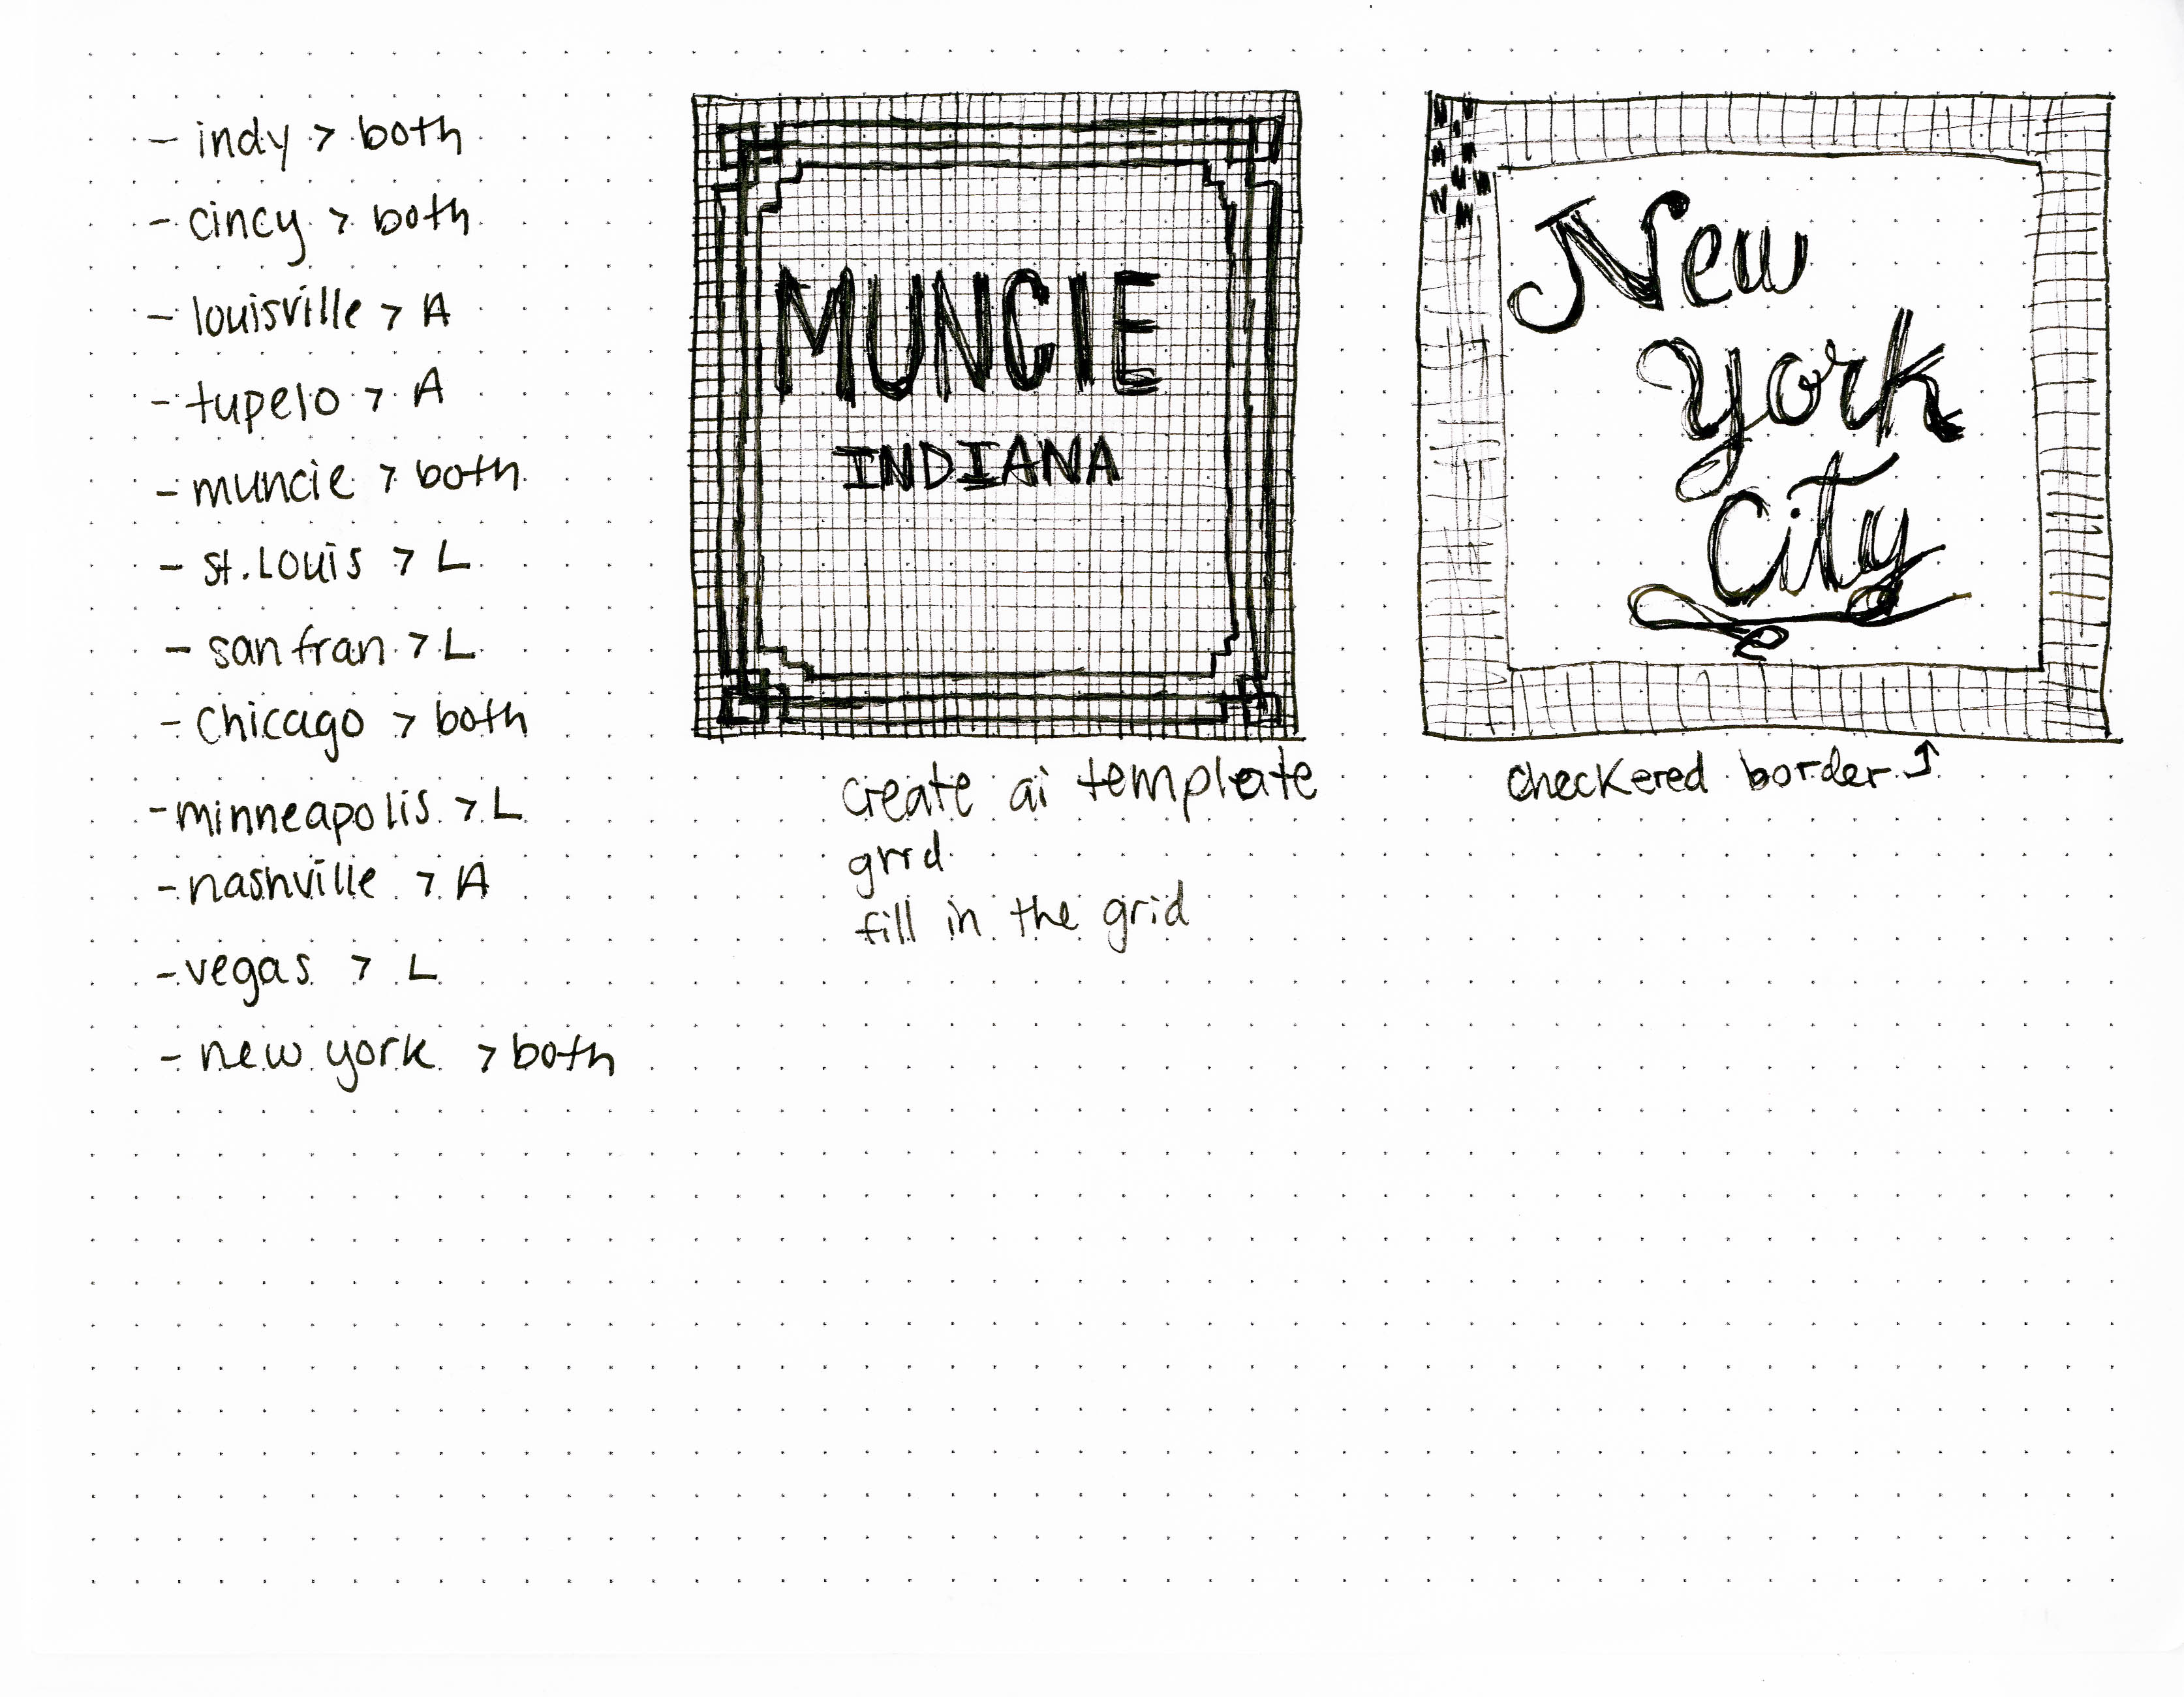 - indy > both
- cincy > both
- louisville > A
- tupelo > A
- muncie > both
- st. Louis > L
- san fran > L
- chicago > both
- minneapolis > L
- nashville > A
- vegas > L
- new york > both
MUNCIE
INDIANA
create ai template
grrd
fill in the grid
New
York
City
checkered border ↑